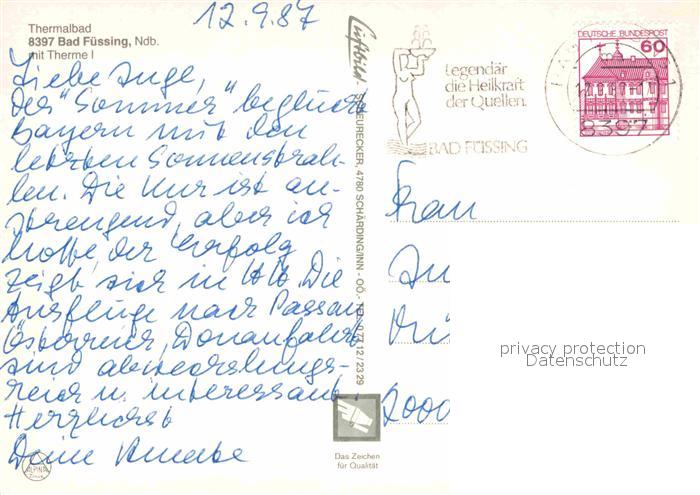 12.9.87
Thermalbad
8397 Bad Füssing, Ndb.
mit Therme I
Liebe Inge,
der "Sommer" beglückt
Bayern mit den
letzten Sonnenstrah-
len. Die Kur ist an-
strengend, aber ich
hoffe, der Erfolg
zeigt sich in HH. Die
Ausflüge nach Passau,
Österreich, Donaufahrt
sind abwechslungs-
reich u. interessant.
Herzlichst
Deine
ALPINA
Luftbild
SCHEURECKER, 4780 SCHÄRDING/INN - OÖ., TEL. 0 77 12 / 23 29
Das Zeichen
für Qualität
Legendär
die Heilkraft
der Quellen.
BAD FÜSSING
DEUTSCHE BUNDESPOST
60
8397
Frau
In
2000
privacy protection
Datenschutz